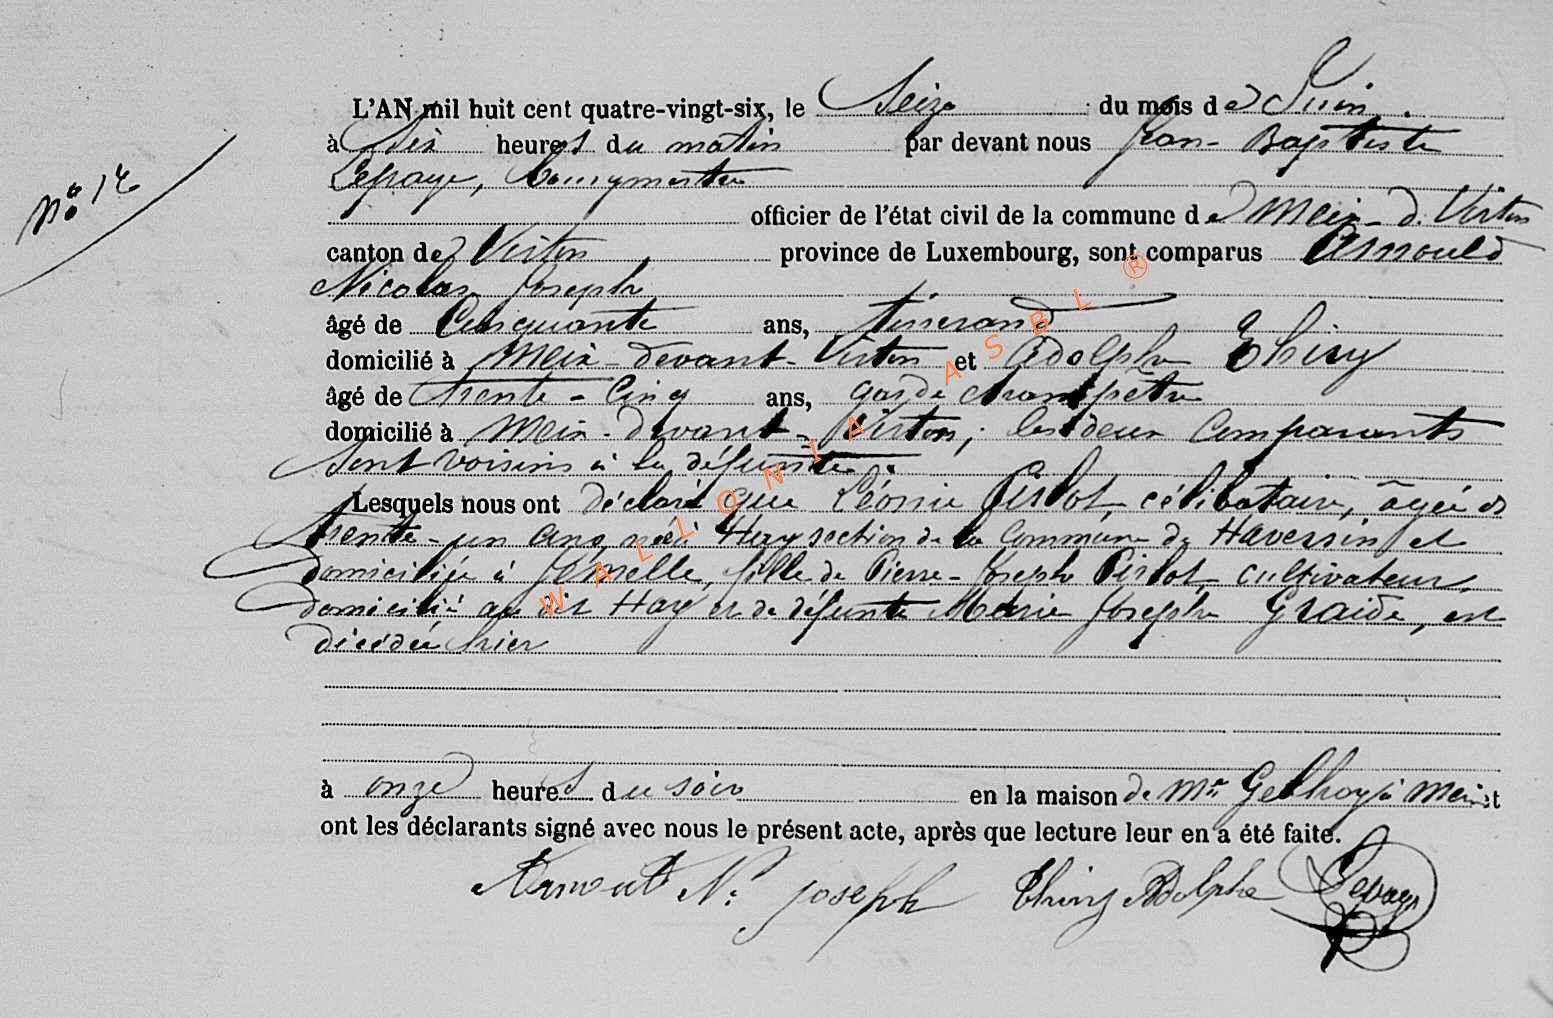 L'AN mil huit cent quatre-vingt-six, le Seize du mois de Juin.
à Six heures du matin par devant nous Jean-Baptiste
N° 14
Lepage, bourgmestre
officier de l'état civil de la commune de Meix-d. Virton
canton de Virton province de Luxembourg, sont comparus Arnould
Nicolas Joseph
âgé de Cinquante ans, tisserand
domicilié à Meix-devant-Virton et Adolphe Thiry
âgé de trente-cinq ans, garde champêtre
domicilié à Meix-devant-Virton; les deux Comparants
sont voisins à la défunte.
Lesquels nous ont déclaré que Léonie Pirlot, célibataire, âgée de
trente-un ans, née à Hay section de la Commune de Haversin et
domiciliée à Jemelle, fille de Pierre-Joseph Pirlot, cultivateur,
domicilié au dit Hay et de défunte Marie Josephe Graide, est
décédée hier
à onze heures du soir en la maison de Mr Gelhay à Meix et
ont les déclarants signé avec nous le présent acte, après que lecture leur en a été faite.
Arnould N. Joseph Thiry Adolphe Lepage
WALLONIA ASBL ®